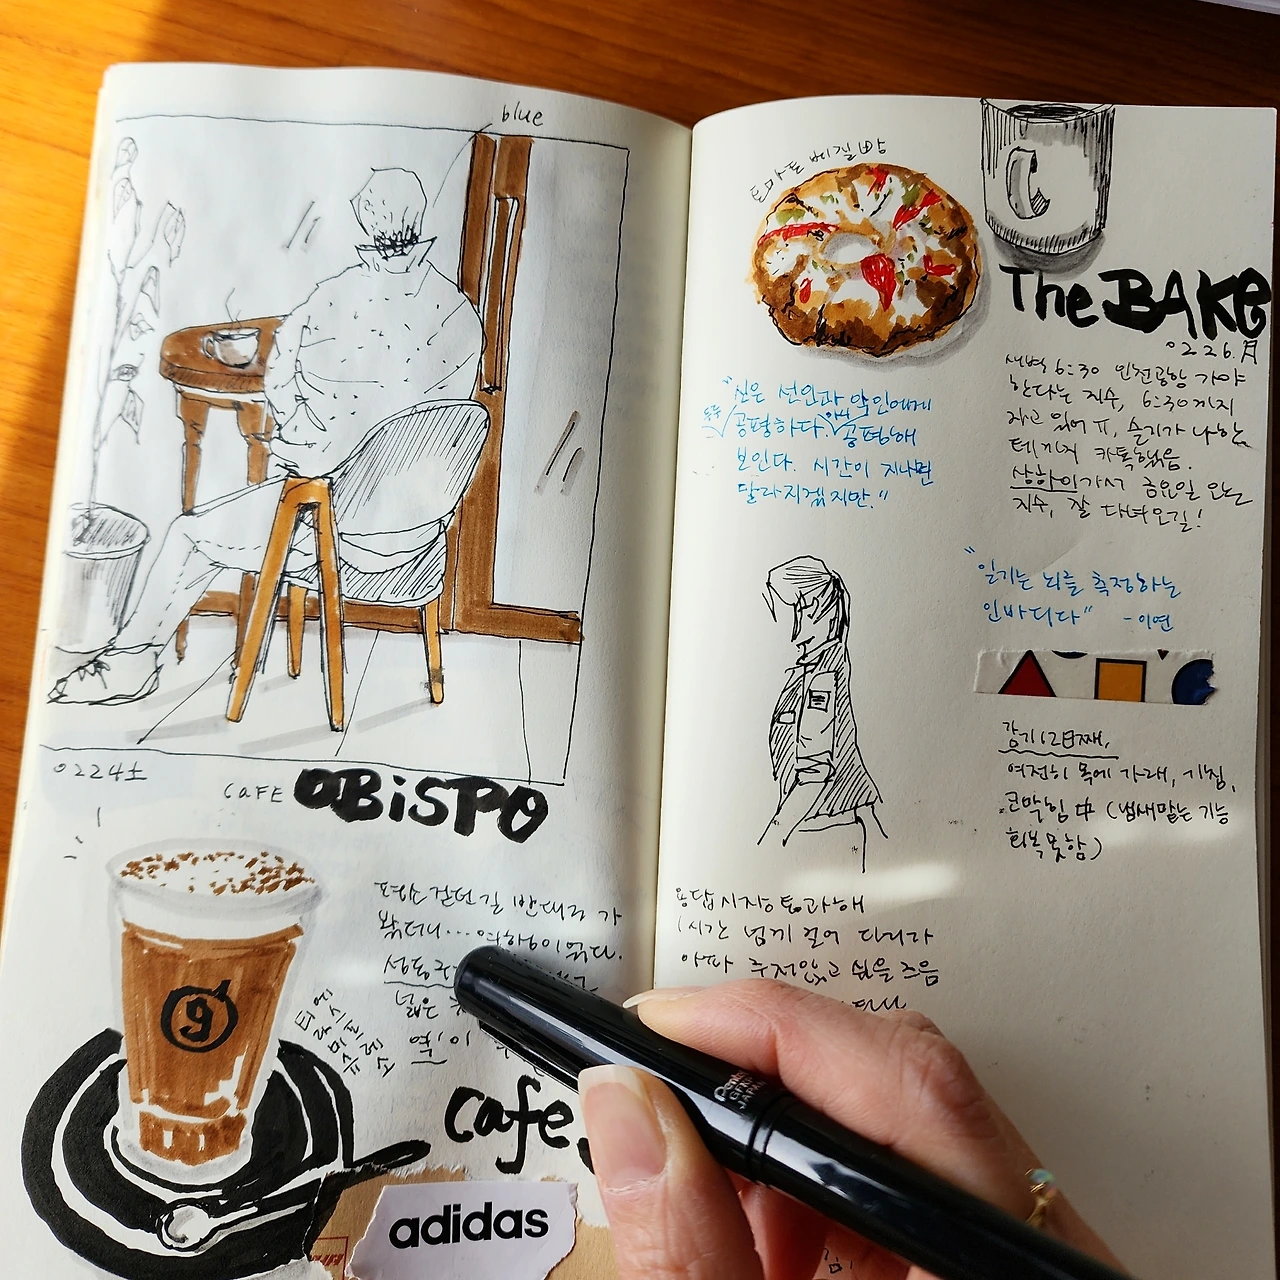 blue
0224土
CAFE OBiSPO
평소 걷던 길 반대로 가
봤더니...
성동
넓은
티라미수
에스프레소
9
cafe
adidas
토마토 베이글 빵
The BAKE
0226.月
새벽 6:30 인천공항 가야
한다는 지수, 6:30까지
자고 있어 ㅠ, 슬기가 나한
테까지 카톡했음.
상하이가서 금요일 오는
지수, 잘 다녀오길!
"신은 선인과 악인에게
공평하다. 공평해
보인다. 시간이 지나면
달라지겠지만."
"일기는 뇌를 측정하는
인바디다" -이연
감기 12日째,
여전히 목에 가래, 기침,
코막힘 中 (냄새맡는 기능
회복 못함)
용답시장 통과해
1시간 넘게 걸어 다니다
아파 주저앉고 싶을 즈음
Pentel
GFKP
JAPAN